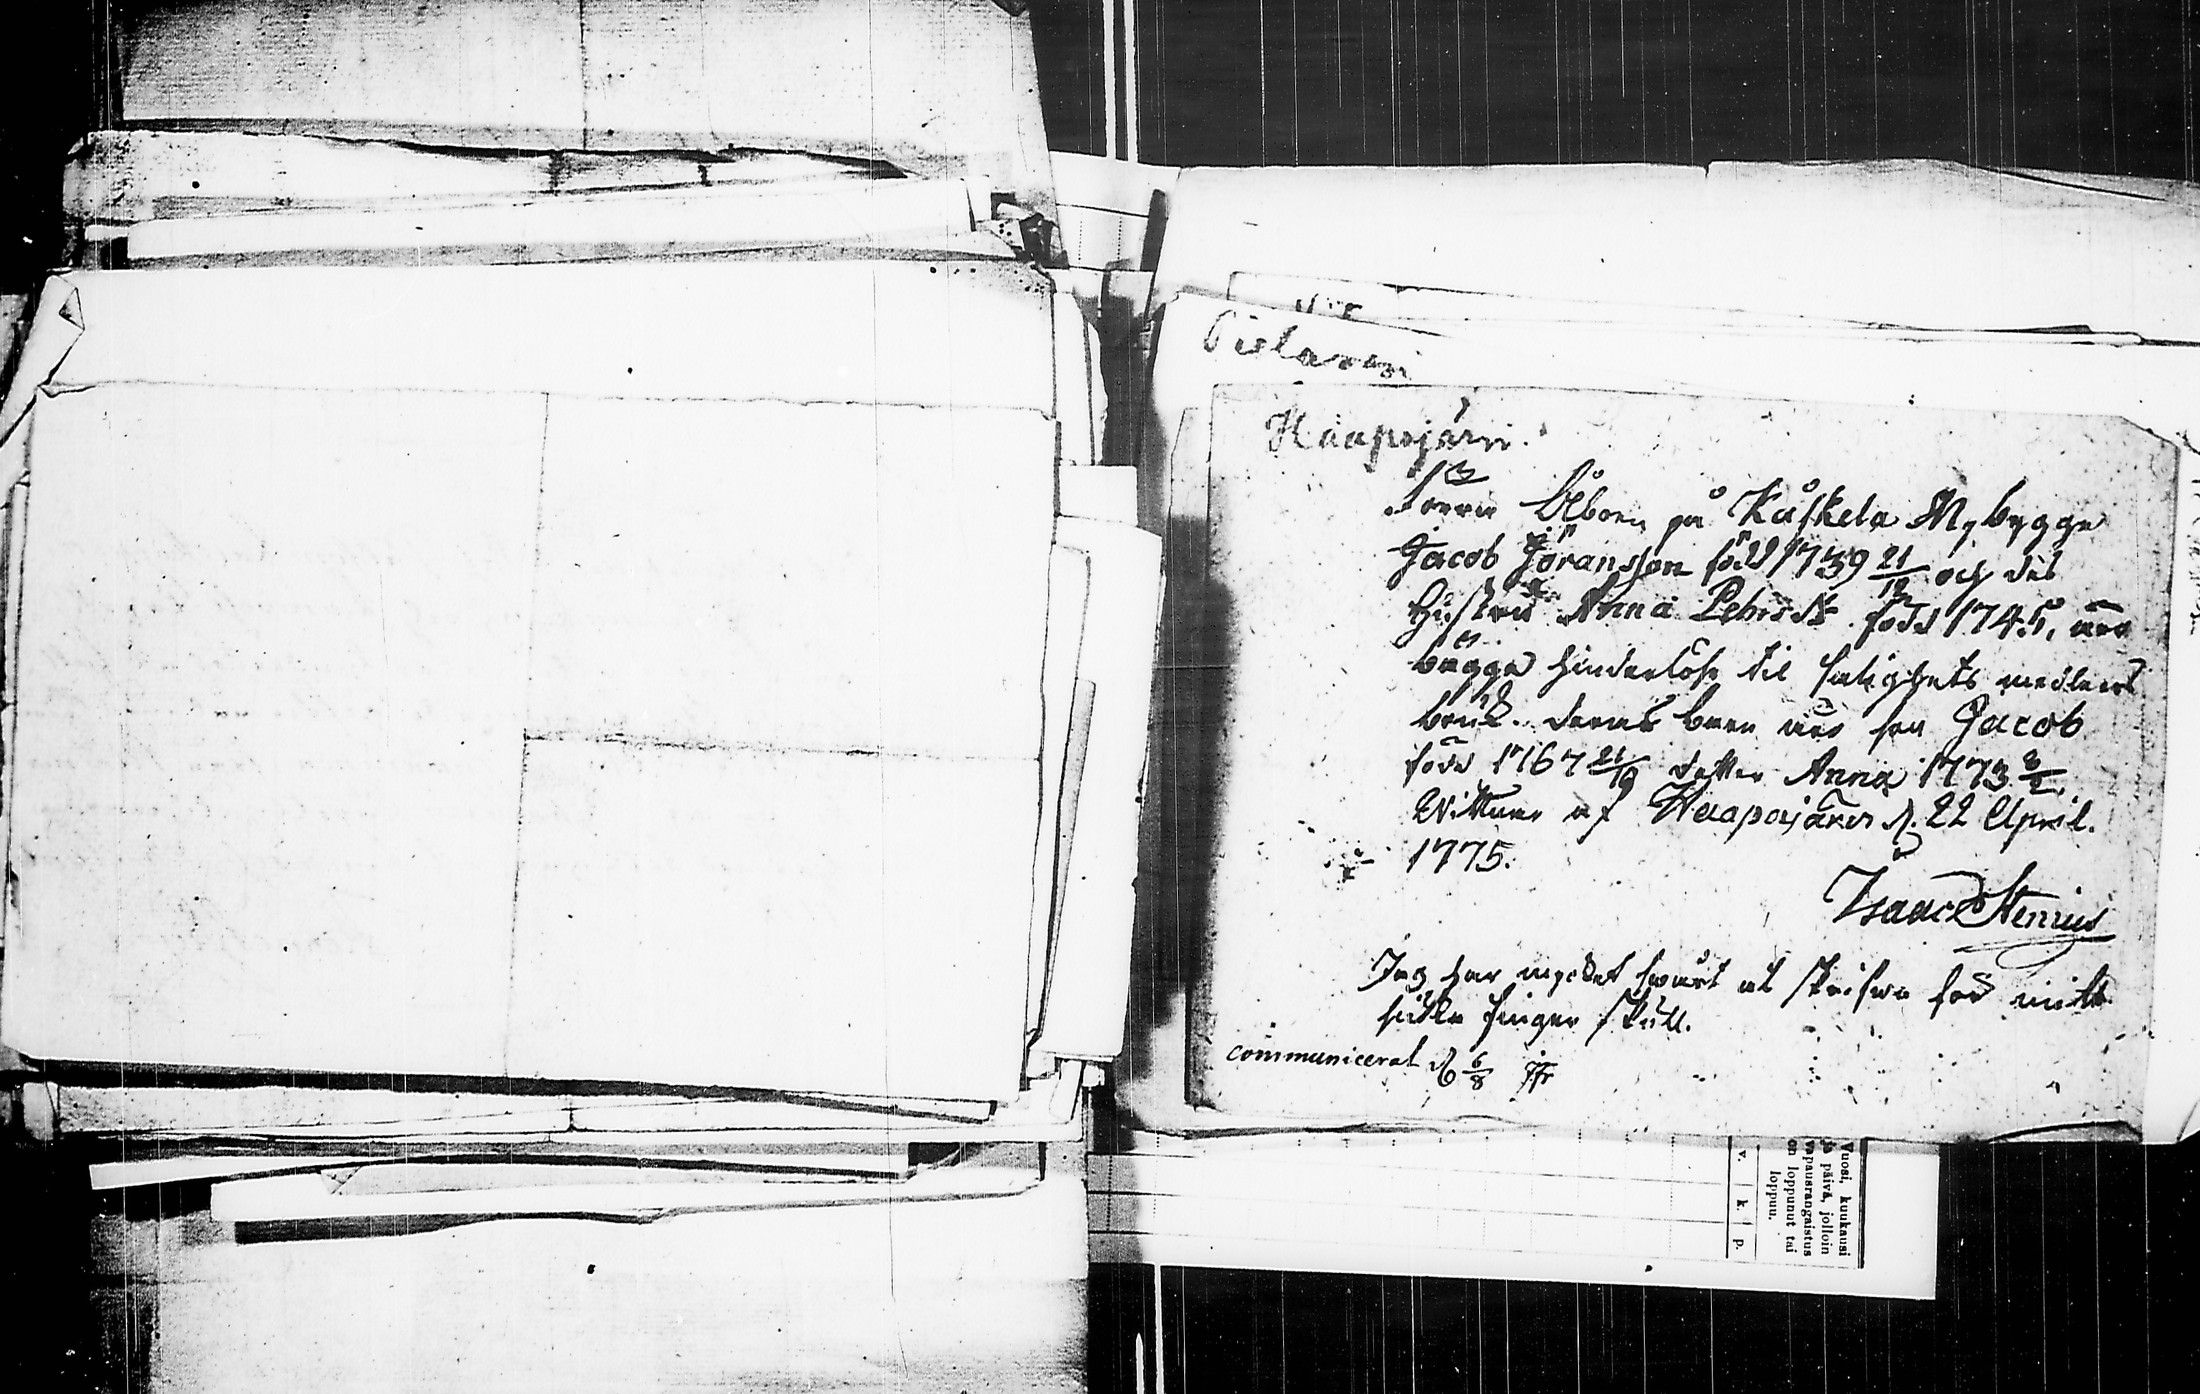 Pielavesi
Haapajärvi.
Förra Åboen på Kåskela Nybygge
Jacob Jöransson född 1739 21/12 och des
Hustru Anna Pehrsdr född 1745, äro
bägge hinderlöse til salighets medlens
bruk. deras barn äro son Jacob
född 1767 21/10 dotter Anna 1773
Wittnar af Haapajärvi d. 22 April.
1775.
Isaac Stenius
Jag har mycket swårt at skrifwa för mitt
siuka finger skull.
communicerat d 6/8
Vuosi, kuukausi
ja päivä, jolloin
vapausrangaistus
on loppunut tai
loppuu.
v. k. p.